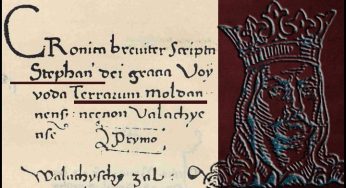 Cronica breviter Scripta
Stephan' dei gracia Voy
voda Terrarum Moldan
nensi: necnon Valachye
nse Prymo
Walachyschy zal: